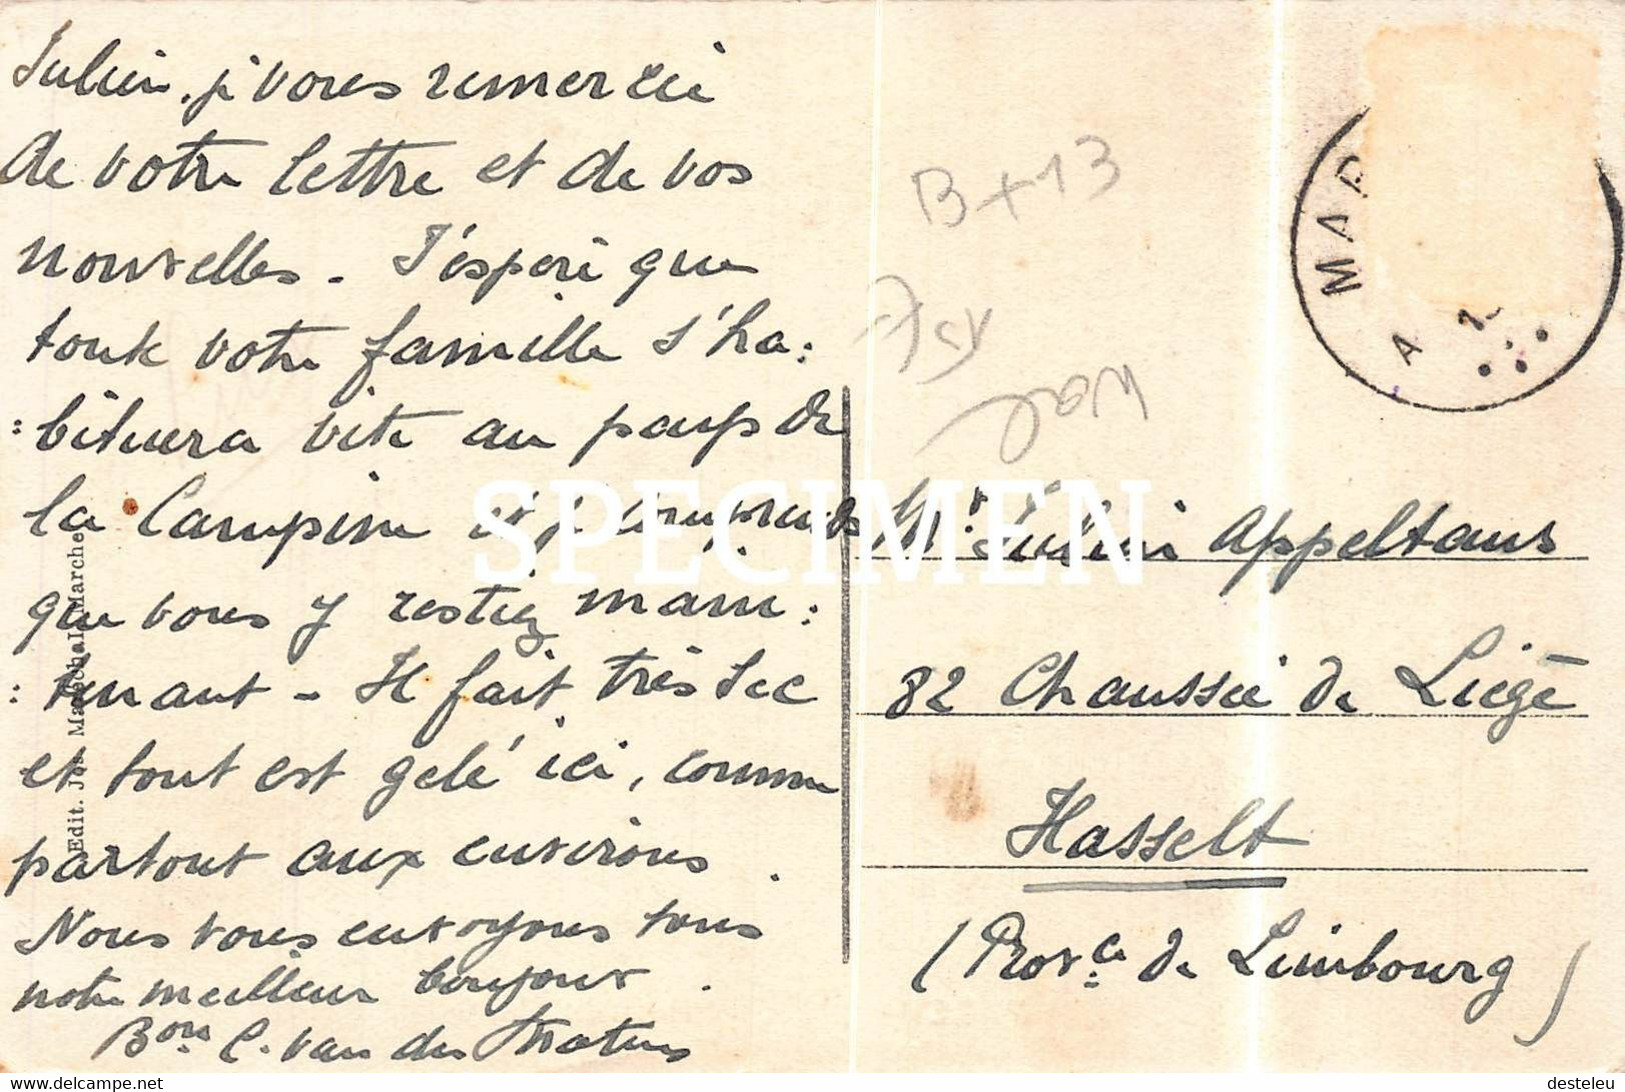 Julien, je vous remercie
de votre lettre et de vos
nouvelles - J'espère que
toute votre famille s'ha:
:bituera vite au pays de
la Campine et je comprends
que vous y restiez main:
:tenant - Il fait très sec
et tout est gelé ici, comme
partout aux environs.
Nous vous envoyons tous
notre meilleur bonjour.
Bonn C. van der Straten
Edit. Jos. Maréchal, Marche
B+13
MAR
A
SPECIMEN
Mr. Julien Appeltans
82 Chaussée de Liège
Hasselt
(Provce de Limbourg)
www.delcampe.net
desteleu